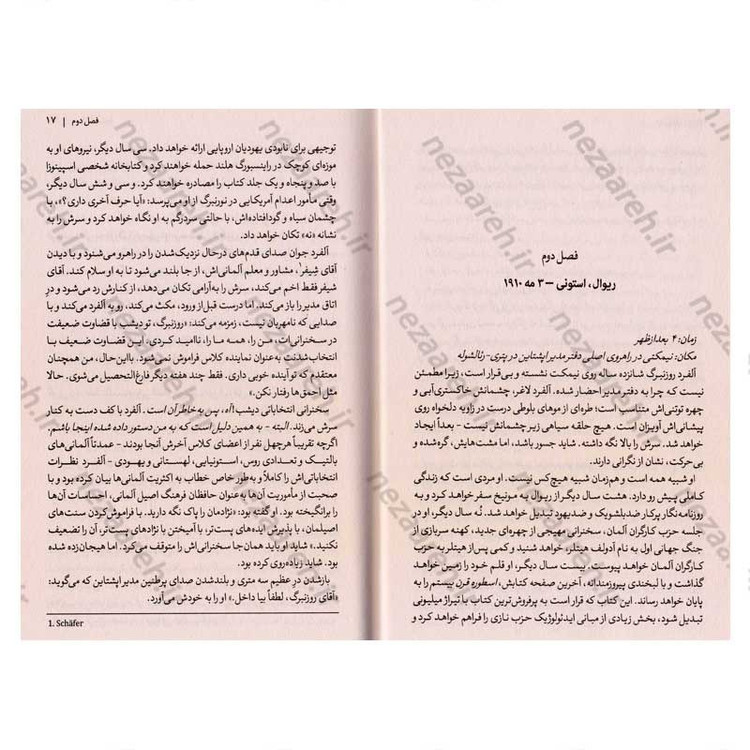 فصل دوم
ریوال، استونی – ۳ مه ۱۹۱۰
زمان: ۴ بعدازظهر
مکان: نیمکتی در راهروی اصلی دفتر مدیر اپشتاین در پتری- رئالشوله
آلفرد روزنبرگ شانزده ساله روی نیمکت نشسته و بی‌قرار است، زیرا مطمئن
نیست که چرا به دفتر مدیر احضار شده. آلفرد لاغر، چشمانش خاکستری‌آبی و
چهره توتنی‌اش متناسب است؛ طره‌ای از موهای بلوطی درست در زاویه دلخواه روی
پیشانی‌اش آویزان است. هیچ حلقه سیاهی زیر چشمانش نیست - بعداً ایجاد
خواهد شد. سرش را بالا نگه داشته. شاید جسور باشد، اما مشت‌هایش، گره‌شده و
بی‌حرکت، نشان از نگرانی دارند.
او شبیه همه است و هم‌زمان شبیه هیچ‌کس نیست. او مردی است که زندگی
کاملی پیش رو دارد. هشت سال دیگر از ریوال به مونیخ سفر خواهد کرد و به
روزنامه‌نگار پرکار ضدبلشویک و ضدیهود تبدیل خواهد شد. نُه سال دیگر، او در
جلسه حزب کارگران آلمان، سخنرانی مهیجی از چهره‌ای جدید، کهنه سربازی از
جنگ جهانی اول به نام آدولف هیتلر، خواهد شنید و کمی پس از هیتلر به حزب
کارگران آلمان خواهد پیوست. بیست سال دیگر، او قلم خود را زمین خواهد
گذاشت و با لبخندی پیروزمندانه، آخرین صفحه کتابش، اسطوره قرن بیستم را به
پایان خواهد رساند. این کتاب که قرار است به پرفروش‌ترین کتاب با تیراژ میلیونی
تبدیل شود، بخش زیادی از مبانی ایدئولوژیک حزب نازی را فراهم خواهد کرد و
فصل دوم | ۱۷
توجیهی برای نابودی یهودیان اروپایی ارائه خواهد داد. سی سال دیگر، نیروهای او به
موزه‌ای کوچک در راینسبورگ هلند حمله خواهند کرد و کتابخانه شخصی اسپینوزا
با صد و پنجاه و یک جلد کتاب را مصادره خواهند کرد. و سی و شش سال دیگر،
وقتی مأمور اعدام آمریکایی در نورنبرگ از او می‌پرسد: «آیا حرف آخری داری؟»، با
چشمان سیاه و گودافتاده‌اش، با حالتی سردرگم به او نگاه خواهد کرد و سرش را به
نشانه «نه» تکان خواهد داد.
آلفرد جوان صدای قدم‌های درحال نزدیک‌شدن را در راهرو می‌شنود و با دیدن
آقای شِیفر۱، مشاور و معلم آلمانی‌اش، از جا بلند می‌شود تا به او سلام کند. آقای
شیفر فقط اخم می‌کند، سرش را به‌آرامی تکان می‌دهد، از کنارش رد می‌شود و درِ
اتاق مدیر را باز می‌کند. اما درست قبل‌از ورود، مکث می‌کند، رو به آلفرد می‌کند و با
صدایی که نامهربان نیست، زمزمه می‌کند: «روزنبرگ، تو دیشب با قضاوت ضعیفت
در سخنرانی‌ات، من را، همه ما را، ناامید کردی. این قضاوت ضعیف با
انتخاب‌شدنت به‌عنوان نماینده کلاس فراموش نمی‌شود. بااین‌حال، من همچنان
معتقدم که تو آینده خوبی داری. فقط چند هفته دیگر فارغ‌التحصیل می‌شوی. حالا
مثل احمق‌ها رفتار نکن.»
سخنرانی انتخاباتی دیشب! آه، پس به خاطر آن است. آلفرد با کف دست به کنار
سرش می‌زند. البته - به همین دلیل است که به من دستور داده شده اینجا باشم.
اگرچه تقریباً هر چهل نفر از اعضای کلاس آخرش آنجا بودند - عمدتاً آلمانی‌های
بالتیک و تعدادی روس، استونیایی، لهستانی و یهودی - آلفرد نظرات
انتخاباتی‌اش را کاملاً و به‌طور خاص خطاب به اکثریت آلمانی‌ها بیان کرده بود و با
صحبت از مأموریت آن‌ها به‌عنوان حافظان فرهنگ اصیل آلمانی، احساسات آن‌ها
را برانگیخته بود. او گفته بود: «نژادمان را پاک نگه دارید. با فراموش‌کردن سنت‌های
اصیلمان، با پذیرش ایده‌های پست‌تر، با آمیختن با نژادهای پست‌تر، آن را تضعیف
نکنید.» شاید او باید همان‌جا سخنرانی‌اش را متوقف می‌کرد. اما هیجان‌زده شده
بود. شاید زیاده‌روی کرده بود.
بازشدن درِ عظیم سه متری و بلندشدن صدای پرطنین مدیر اپشتاین که می‌گوید:
«آقای روزنبرگ، لطفاً بیا داخل.» او را به خودش می‌آورد.
1. Schäfer
nezaareh.ir